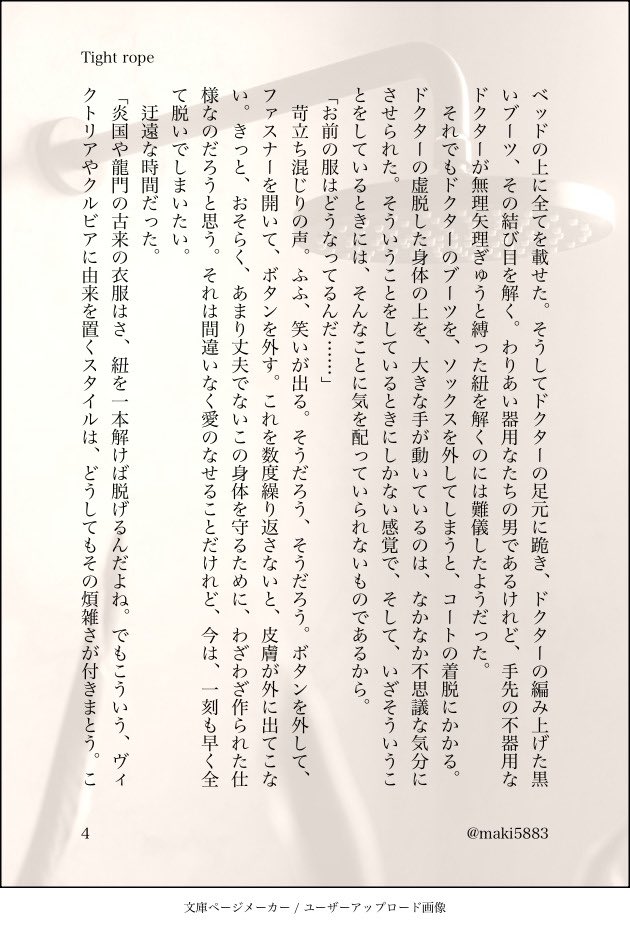 Tight rope
ベッドの上に全てを載せた。そうしてドクターの足元に跪き、ドクターの編み上げた黒
いブーツ、その結び目を解く。わりあい器用なたちの男であるけれど、手先の不器用な
ドクターが無理矢理ぎゅうと縛った紐を解くのには難儀したようだった。
それでもドクターのブーツを、ソックスを外してしまうと、コートの着脱にかかる。
ドクターの虚脱した身体の上を、大きな手が動いているのは、なかなか不思議な気分に
させられた。そういうことをしているときにしかない感覚で、そして、いざそういうこ
とをしているときには、そんなことに気を配っていられないものであるから。
「お前の服はどうなってるんだ……」
苛立ち混じりの声。ふふ、笑いが出る。そうだろう、そうだろう。ボタンを外して、
ファスナーを開いて、ボタンを外す。これを数度繰り返さないと、皮膚が外に出てこな
い。きっと、おそらく、あまり丈夫でないこの身体を守るために、わざわざ作られた仕
様なのだろうと思う。それは間違いなく愛のなせることだけれど、今は、一刻も早く全
て脱いでしまいたい。
迂遠な時間だった。
「炎国や龍門の古来の衣服はさ、紐を一本解けば脱げるんだよね。でもこういう、ヴィ
クトリアやクルビアに由来を置くスタイルは、どうしてもその煩雑さが付きまとう。こ
4
@maki5883
文庫ページメーカー / ユーザーアップロード画像